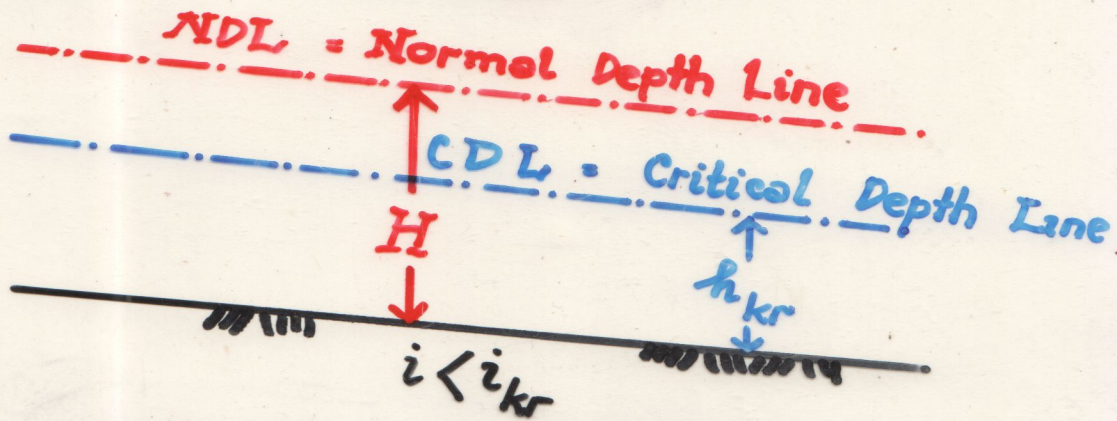 NDL = Normal Depth Line
CDL = Critical Depth Line
H
hkr
i < ikr